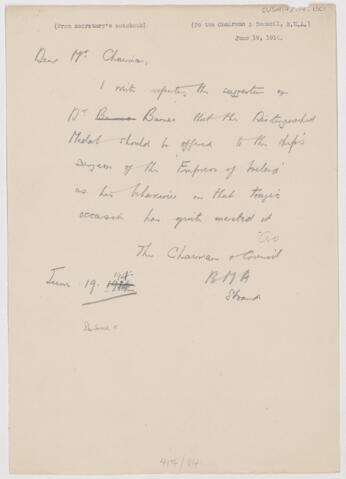 (From secretary's notebook)
(To the Chairman : Council, B.M.A.)
June 19, 1914.
Dear Mr Chairman,
I write reporting the suggestion of
Dr Barnes that the Distinguished
Medal should be offered to the ship's
Surgeon of the 'Empress of Ireland'
as his behaviour on that tragic
occasion has quite merited it
The Chairman of Council
BMA
Strand
June 19. 1914